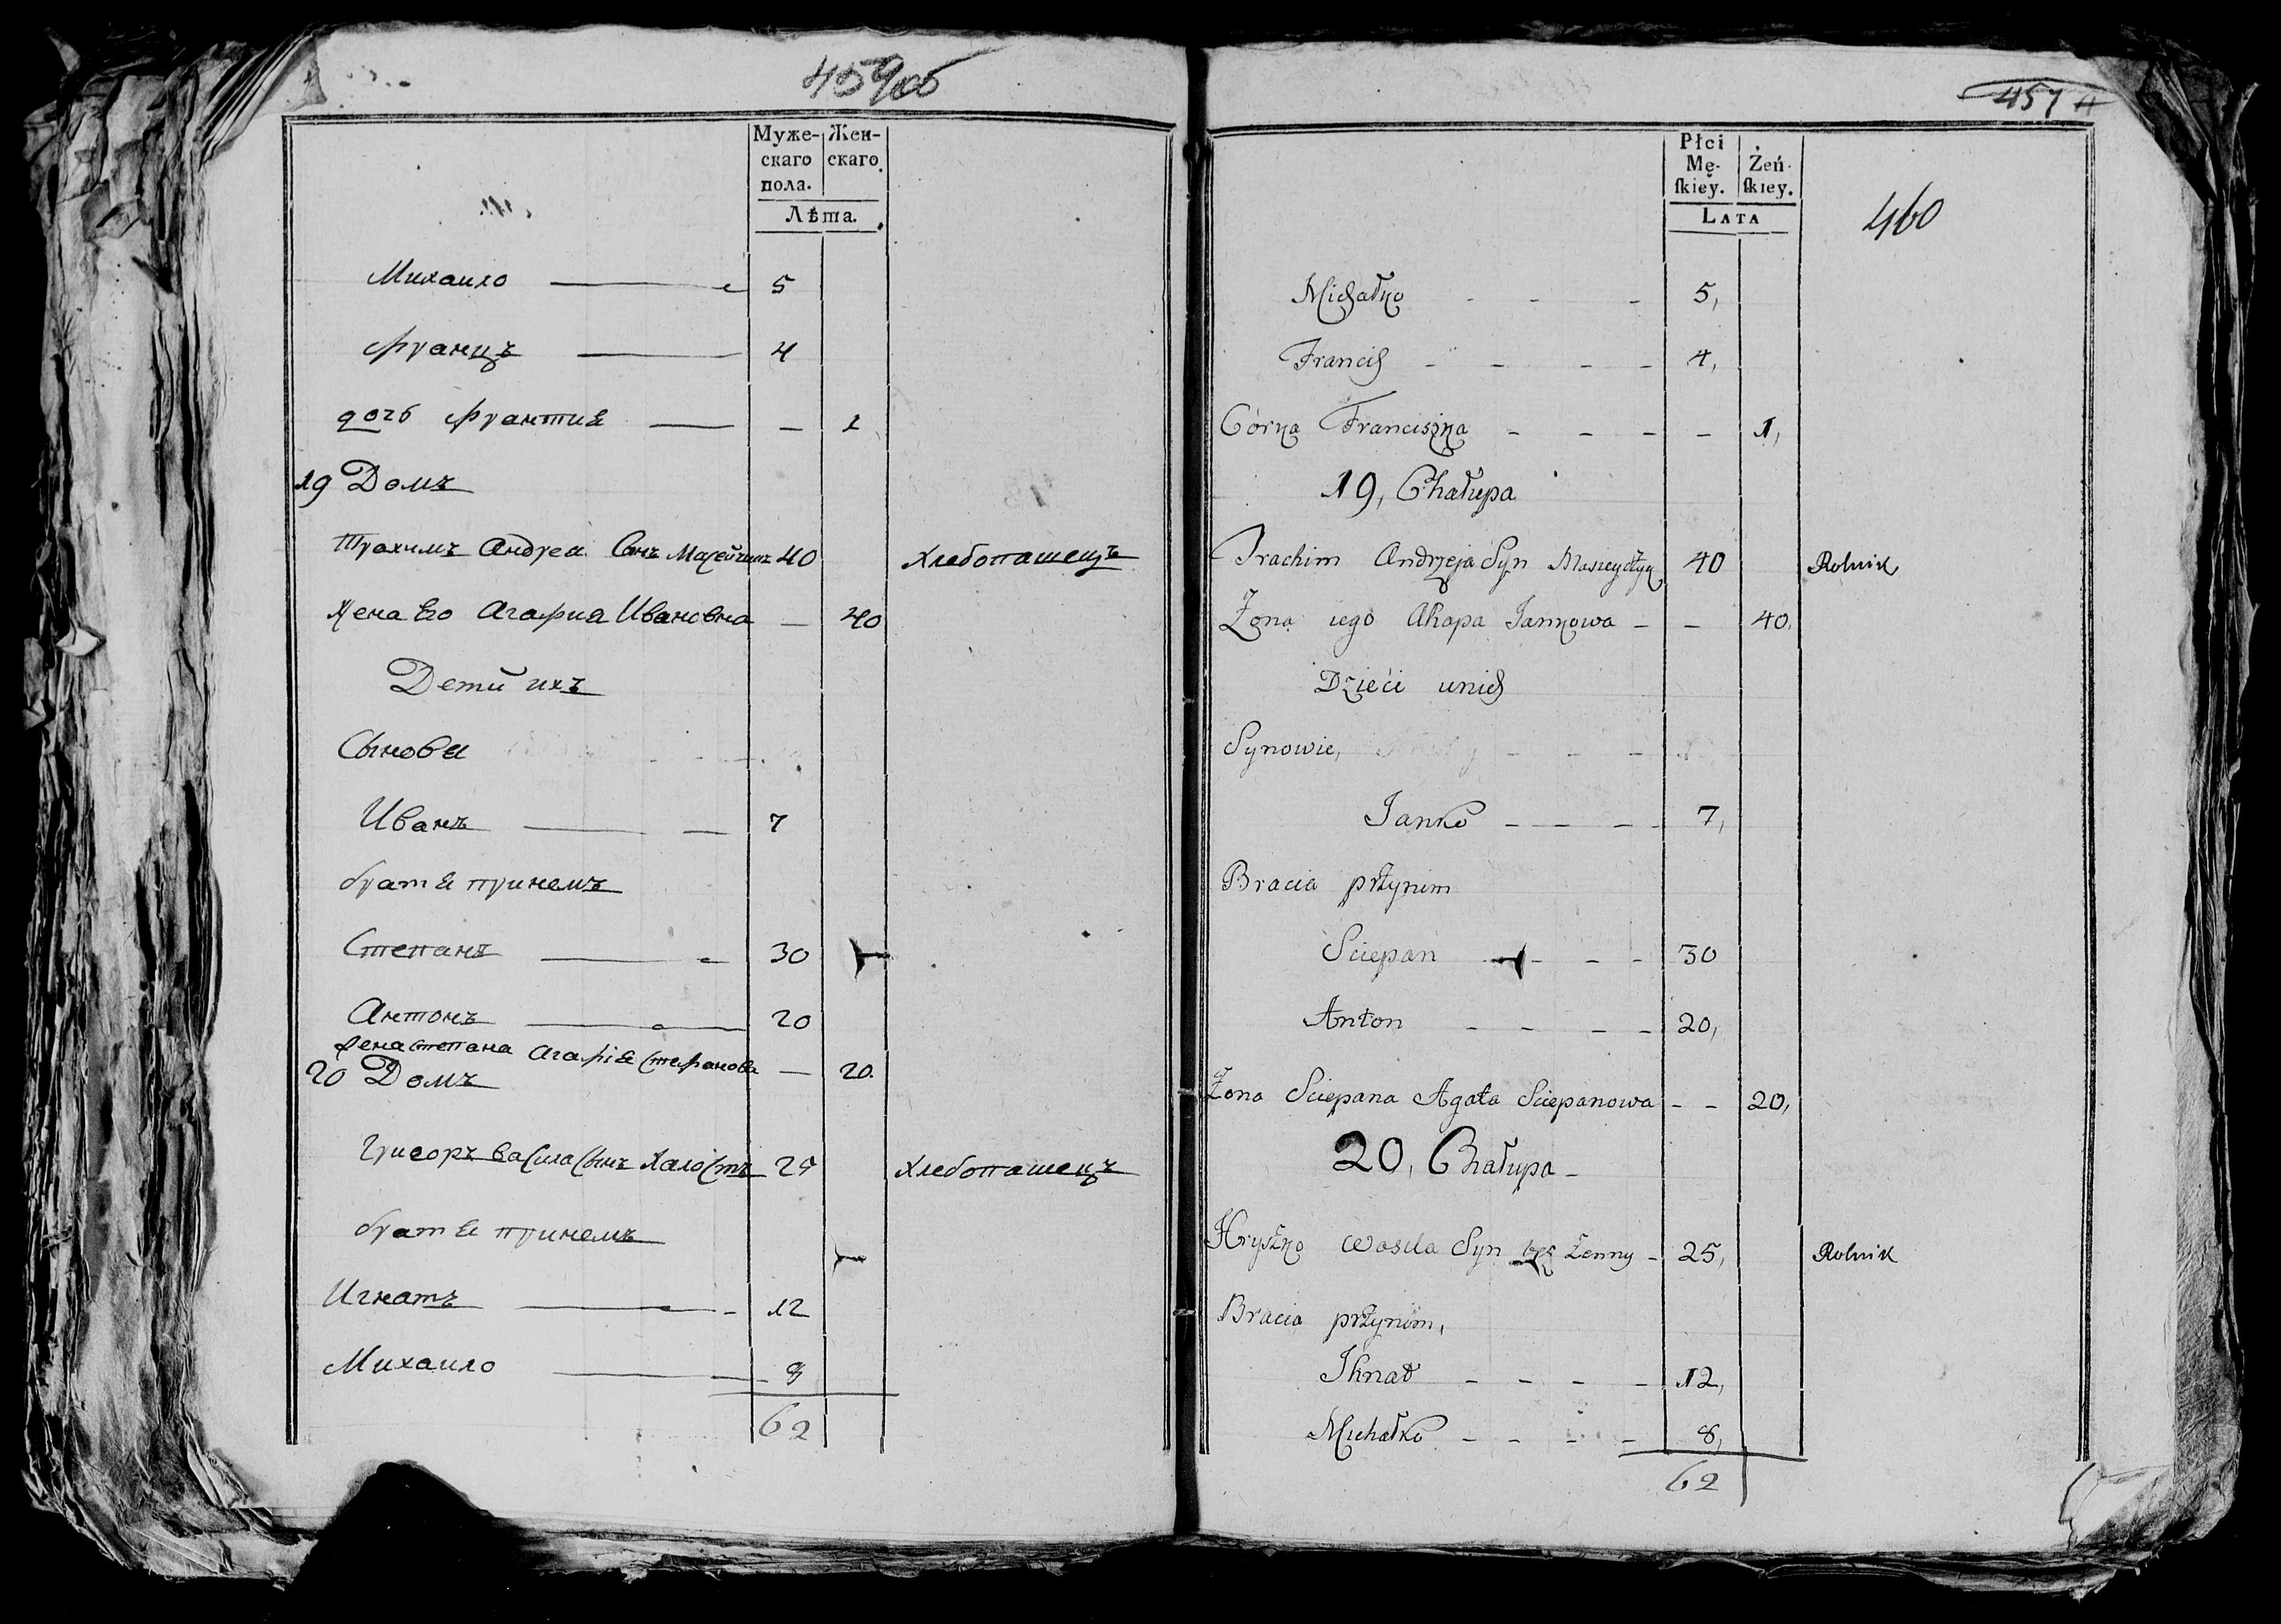 459об
Муже- Жен-
скаго скаго
пола.
Лѣта.
Михаило 5
Францъ 4
дочь — 1
19 Домъ
Трахимъ Андреи Сынъ 40 Хлебопашецъ
Жена Его Агафия Ивановна — 40
Дети ихъ
Сынови
Иванъ 7
братя принемъ
Степанъ 30
Антонъ 20
Жена Степана Агафія Стефанова — 20
20 Домъ
Григоръ Васила Сынъ Халостъ 25 Хлебопашецъ
братя принемъ
Игнатъ 12
Михаило 8
62
457
Płci
Mę- Żeń-
skiey. skiey.
LATA
460
Michałko - - - 5,
Francich - - - - 4,
Córka Franciszka - - - - 1,
19, Chałupa
Trachim Andrzeja Syn 40 Rolnik
Żona iego Ahapa Jankowa - - 40,
Dzieci unich
Synowie, - - -
Janko - - - - 7,
Bracia przynim
Sciepan - - - 30
Anton - - - - 20,
Żona Sciepana Agata Sciepanowa - - 20,
20, Chałupa -
Hryszko Wasila Syn bez Żenny - 25, Rolnik
Bracia przynim,
Ihnat - - - - 12,
Michałko - - - - 8,
62